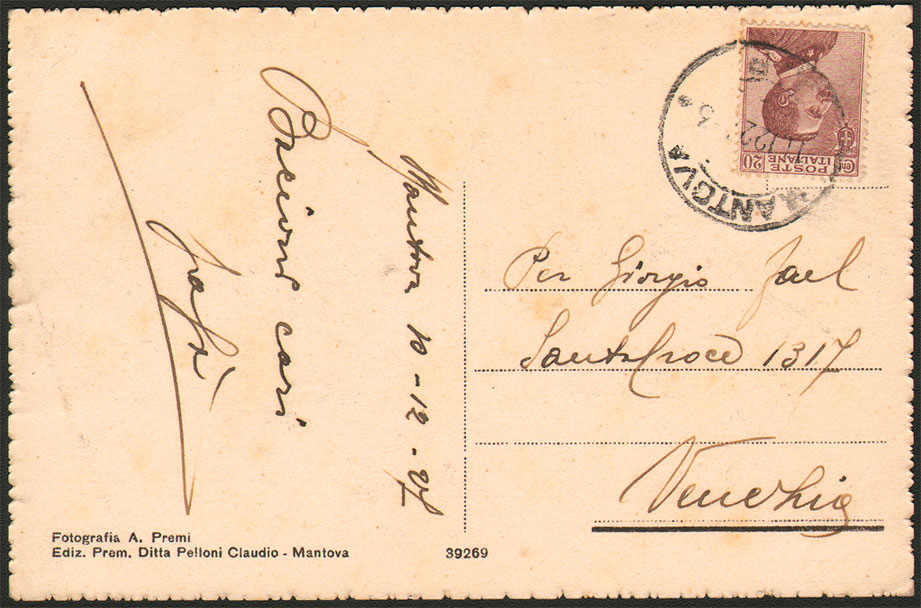 Mantova 10-12-27
Bacioni cari
papà
Fotografia A. Premi
Ediz. Prem. Ditta Pelloni Claudio - Mantova
39269
MANTOVA
POSTE
ITALIANE
Cmi 20
Per Giorgio Jael
Santa Croce 1317
Venezia